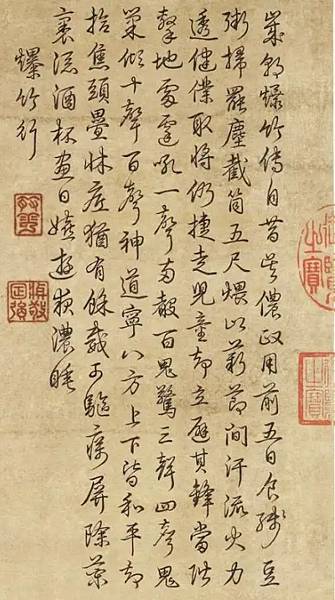 歲朝爆竹傳自昔吳儂政用前五日食殘豆
粥掃罷塵截筒五尺煨以薪節間汗流火力
透健僕取將仍捷走兒童却立避其鋒當階
擊地雷霆吼一聲兩聲百鬼驚三聲四聲鬼
巢傾十聲百聲神道寧八方上下皆和平却
拾焦頭疊牀底猶有餘威可驅癘屏除藥
裹添酒杯晝日嬉遊夜濃睡
爆竹行